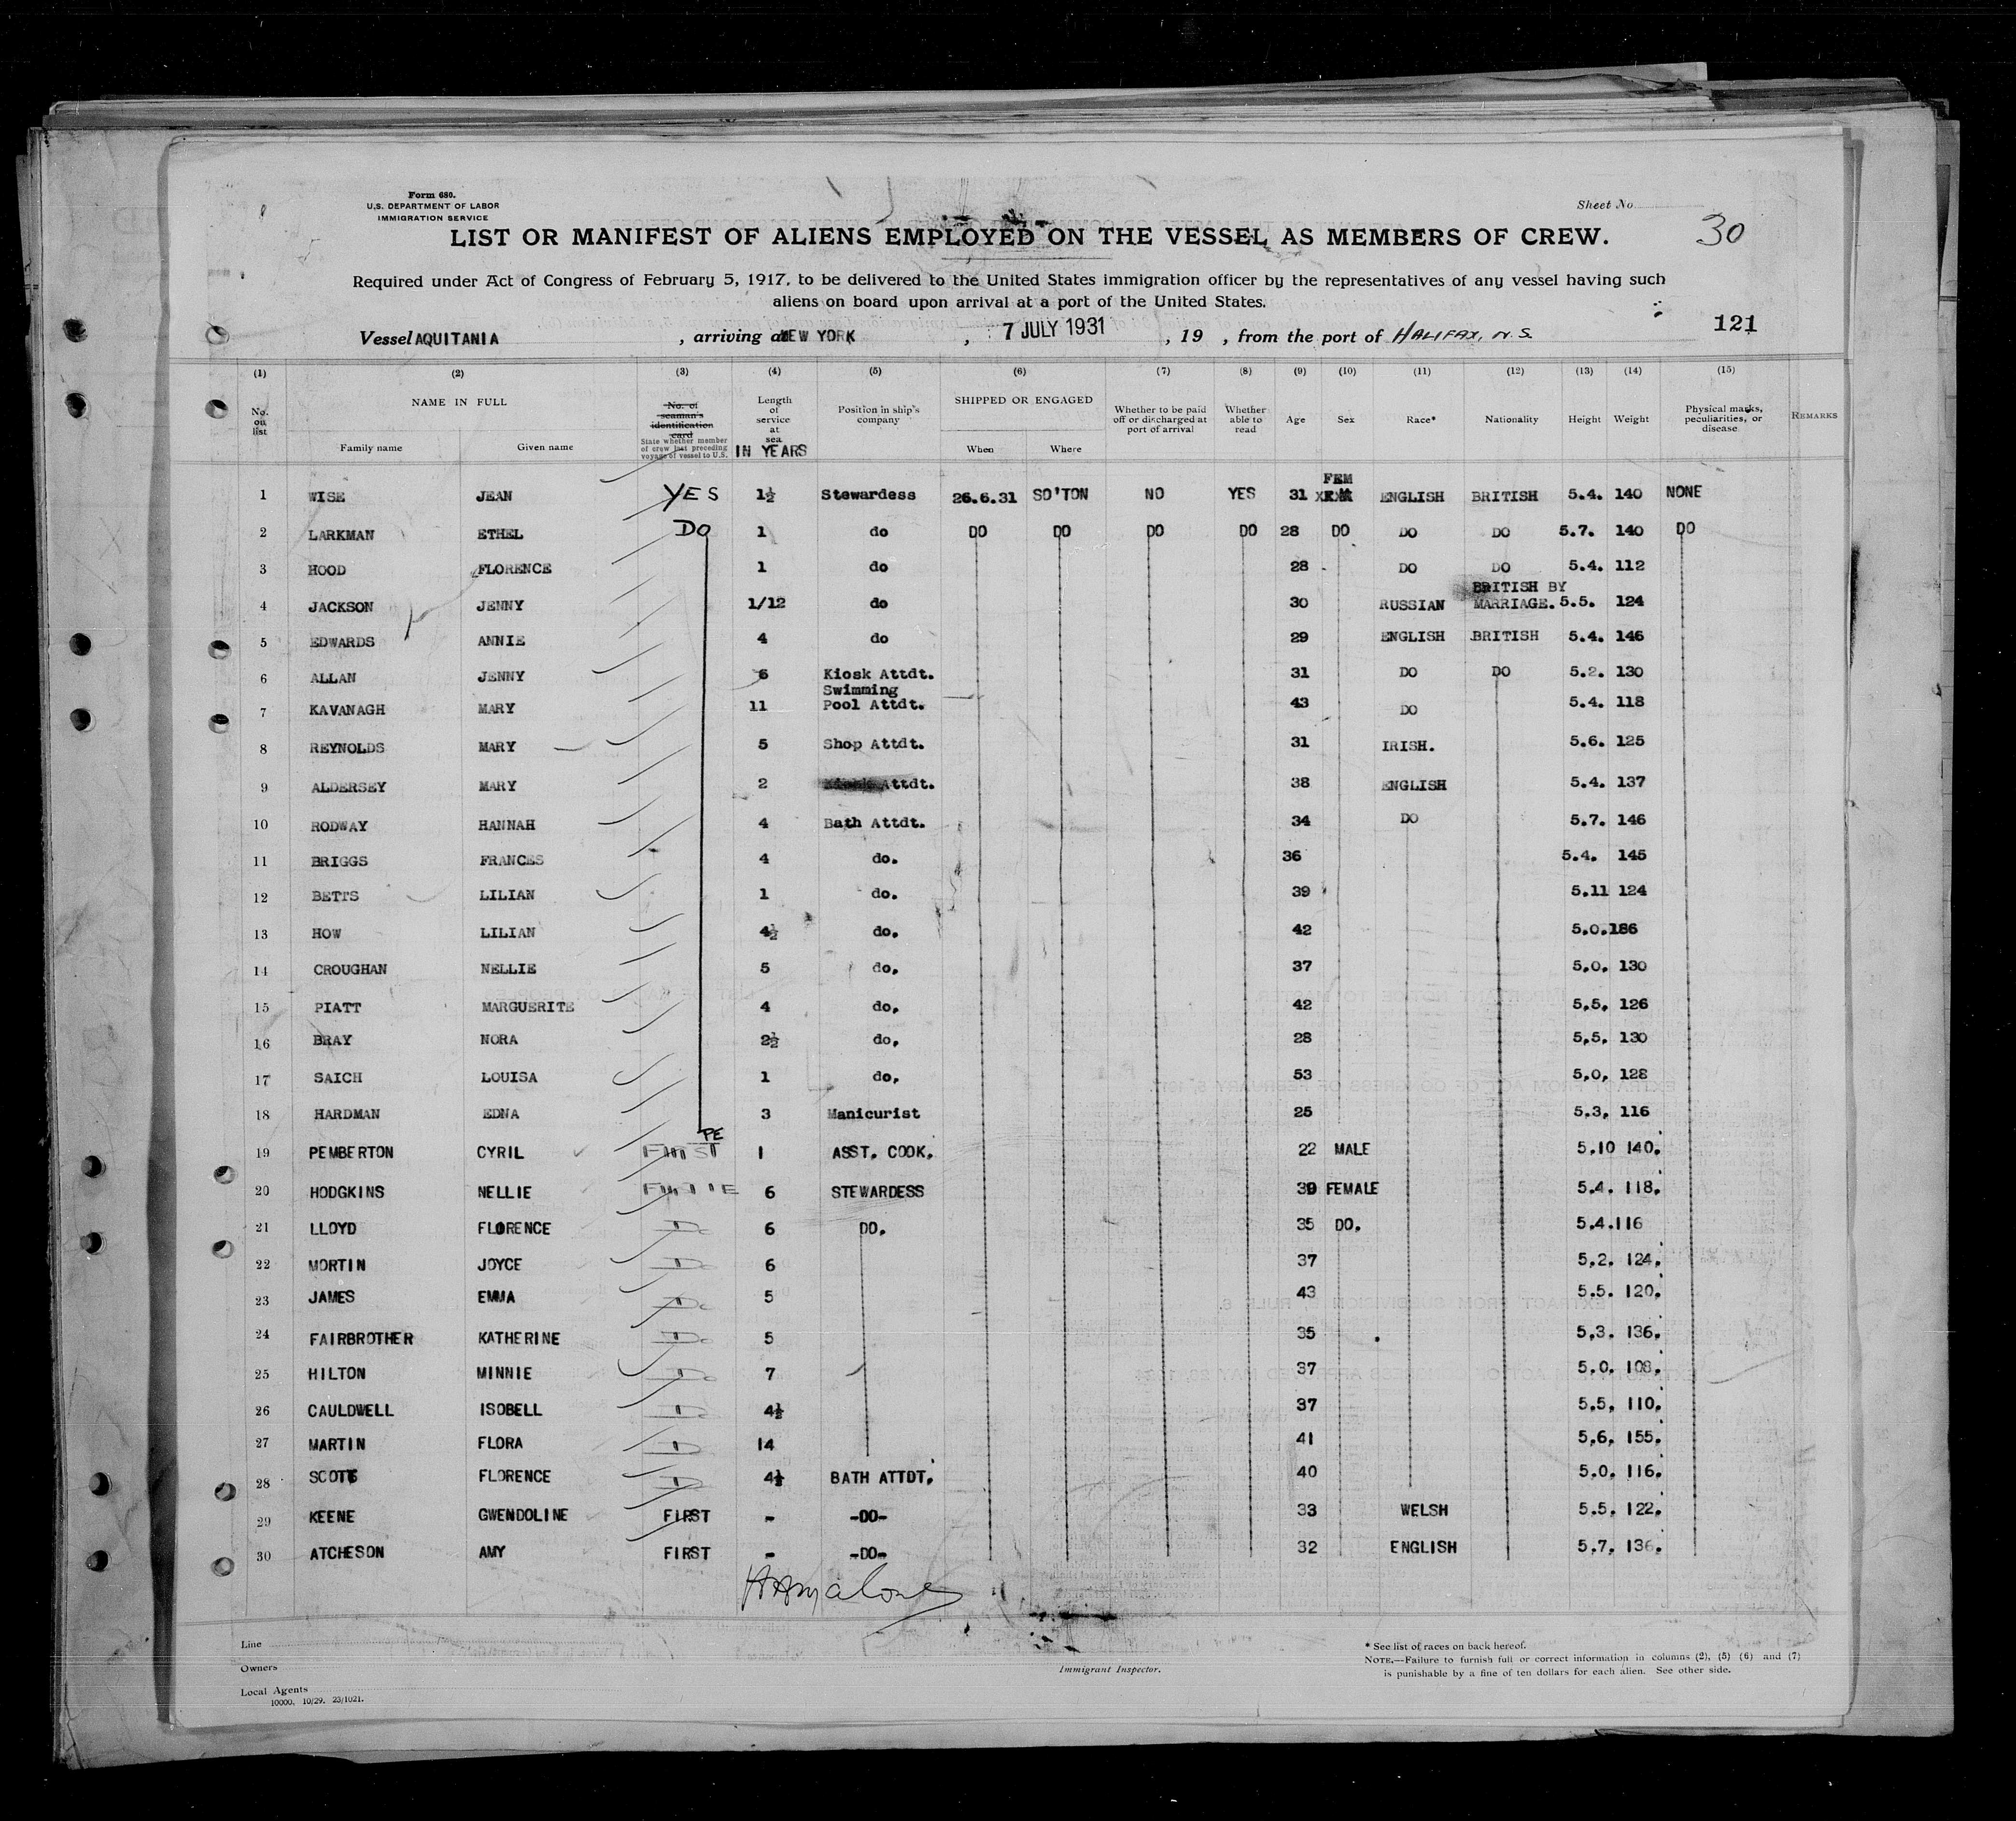 Form 680.
U.S. DEPARTMENT OF LABOR
IMMIGRATION SERVICE
Sheet No. 30
LIST OR MANIFEST OF ALIENS EMPLOYED ON THE VESSEL AS MEMBERS OF CREW.
Required under Act of Congress of February 5, 1917, to be delivered to the United States immigration officer by the representatives of any vessel having such
aliens on board upon arrival at a port of the United States.
121
Vessel AQUITANIA, arriving at NEW YORK, 7 JULY 1931, 19 , from the port of HALIFAX, N.S.
(1) (2) (3) (4) (5) (6) (7) (8) (9) (10) (11) (12) (13) (14) (15)
No. on list
NAME IN FULL
Family name Given name
No. of seaman's identification card
State whether member of crew last preceding voyage of vessel to U.S.
Length of service at sea IN YEARS
Position in ship's company
SHIPPED OR ENGAGED
When Where
Whether to be paid off or discharged at port of arrival
Whether able to read
Age Sex Race* Nationality Height Weight
Physical marks, peculiarities, or disease
REMARKS
FEM
1 WISE JEAN YES 1½ Stewardess 26.6.31 SO'TON NO YES 31 ENGLISH BRITISH 5.4. 140 NONE
2 LARKMAN ETHEL DO 1 do DO DO DO DO 28 DO DO DO 5.7. 140 DO
3 HOOD FLORENCE 1 do 28 DO DO 5.4. 112
4 JACKSON JENNY 1/12 do 30 RUSSIAN BRITISH BY MARRIAGE. 5.5. 124
5 EDWARDS ANNIE 4 do 29 ENGLISH BRITISH 5.4. 146
6 ALLAN JENNY 6 Kiosk Attdt. 31 DO DO 5.2. 130
7 KAVANAGH MARY 11 Swimming Pool Attdt. 43 DO 5.4. 118
8 REYNOLDS MARY 5 Shop Attdt. 31 IRISH. 5.6. 125
9 ALDERSEY MARY 2 Attdt. 38 ENGLISH 5.4. 137
10 RODWAY HANNAH 4 Bath Attdt. 34 DO 5.7. 146
11 BRIGGS FRANCES 4 do. 36 5.4. 145
12 BETTS LILIAN 1 do. 39 5.11 124
13 HOW LILIAN 4½ do. 42 5.0. 186
14 CROUGHAN NELLIE 5 do. 37 5.0. 130
15 PIATT MARGUERITE 4 do. 42 5.5. 126
16 BRAY NORA 2½ do. 28 5.5. 130
17 SAICH LOUISA 1 do. 53 5.0. 128
18 HARDMAN EDNA 3 Manicurist 25 5.3. 116
19 PEMBERTON CYRIL 1 ASST. COOK. 22 MALE 5.10 140.
20 HODGKINS NELLIE 6 STEWARDESS 39 FEMALE 5.4. 118.
21 LLOYD FLORENCE 6 DO. 35 DO. 5.4. 116
22 MORTIN JOYCE 6 37 5.2. 124.
23 JAMES EMMA 5 43 5.5. 120.
24 FAIRBROTHER KATHERINE 5 35 5.3. 136.
25 HILTON MINNIE 7 37 5.0. 108.
26 CAULDWELL ISOBELL 4½ 37 5.5. 110.
27 MARTIN FLORA 14 41 5.6. 155.
28 SCOTT FLORENCE 4½ BATH ATTDT. 40 5.0. 116.
29 KEENE GWENDOLINE FIRST - -DO- 33 WELSH 5.5. 122.
30 ATCHESON AMY FIRST - -DO- 32 ENGLISH 5.7. 136.
Line
Owners
Local Agents
10000. 10/29. 23/1021.
Immigrant Inspector.
* See list of races on back hereof.
NOTE.—Failure to furnish full or correct information in columns (2), (5) (6) and (7)
is punishable by a fine of ten dollars for each alien. See other side.